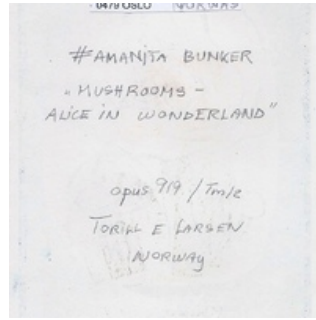 0479 OSLO NORWAY
#AMANITA BUNKER
"MUSHROOMS -
ALICE IN WONDERLAND"
opus 919 / Tm/2
TORILL E LARSEN
NORWAY